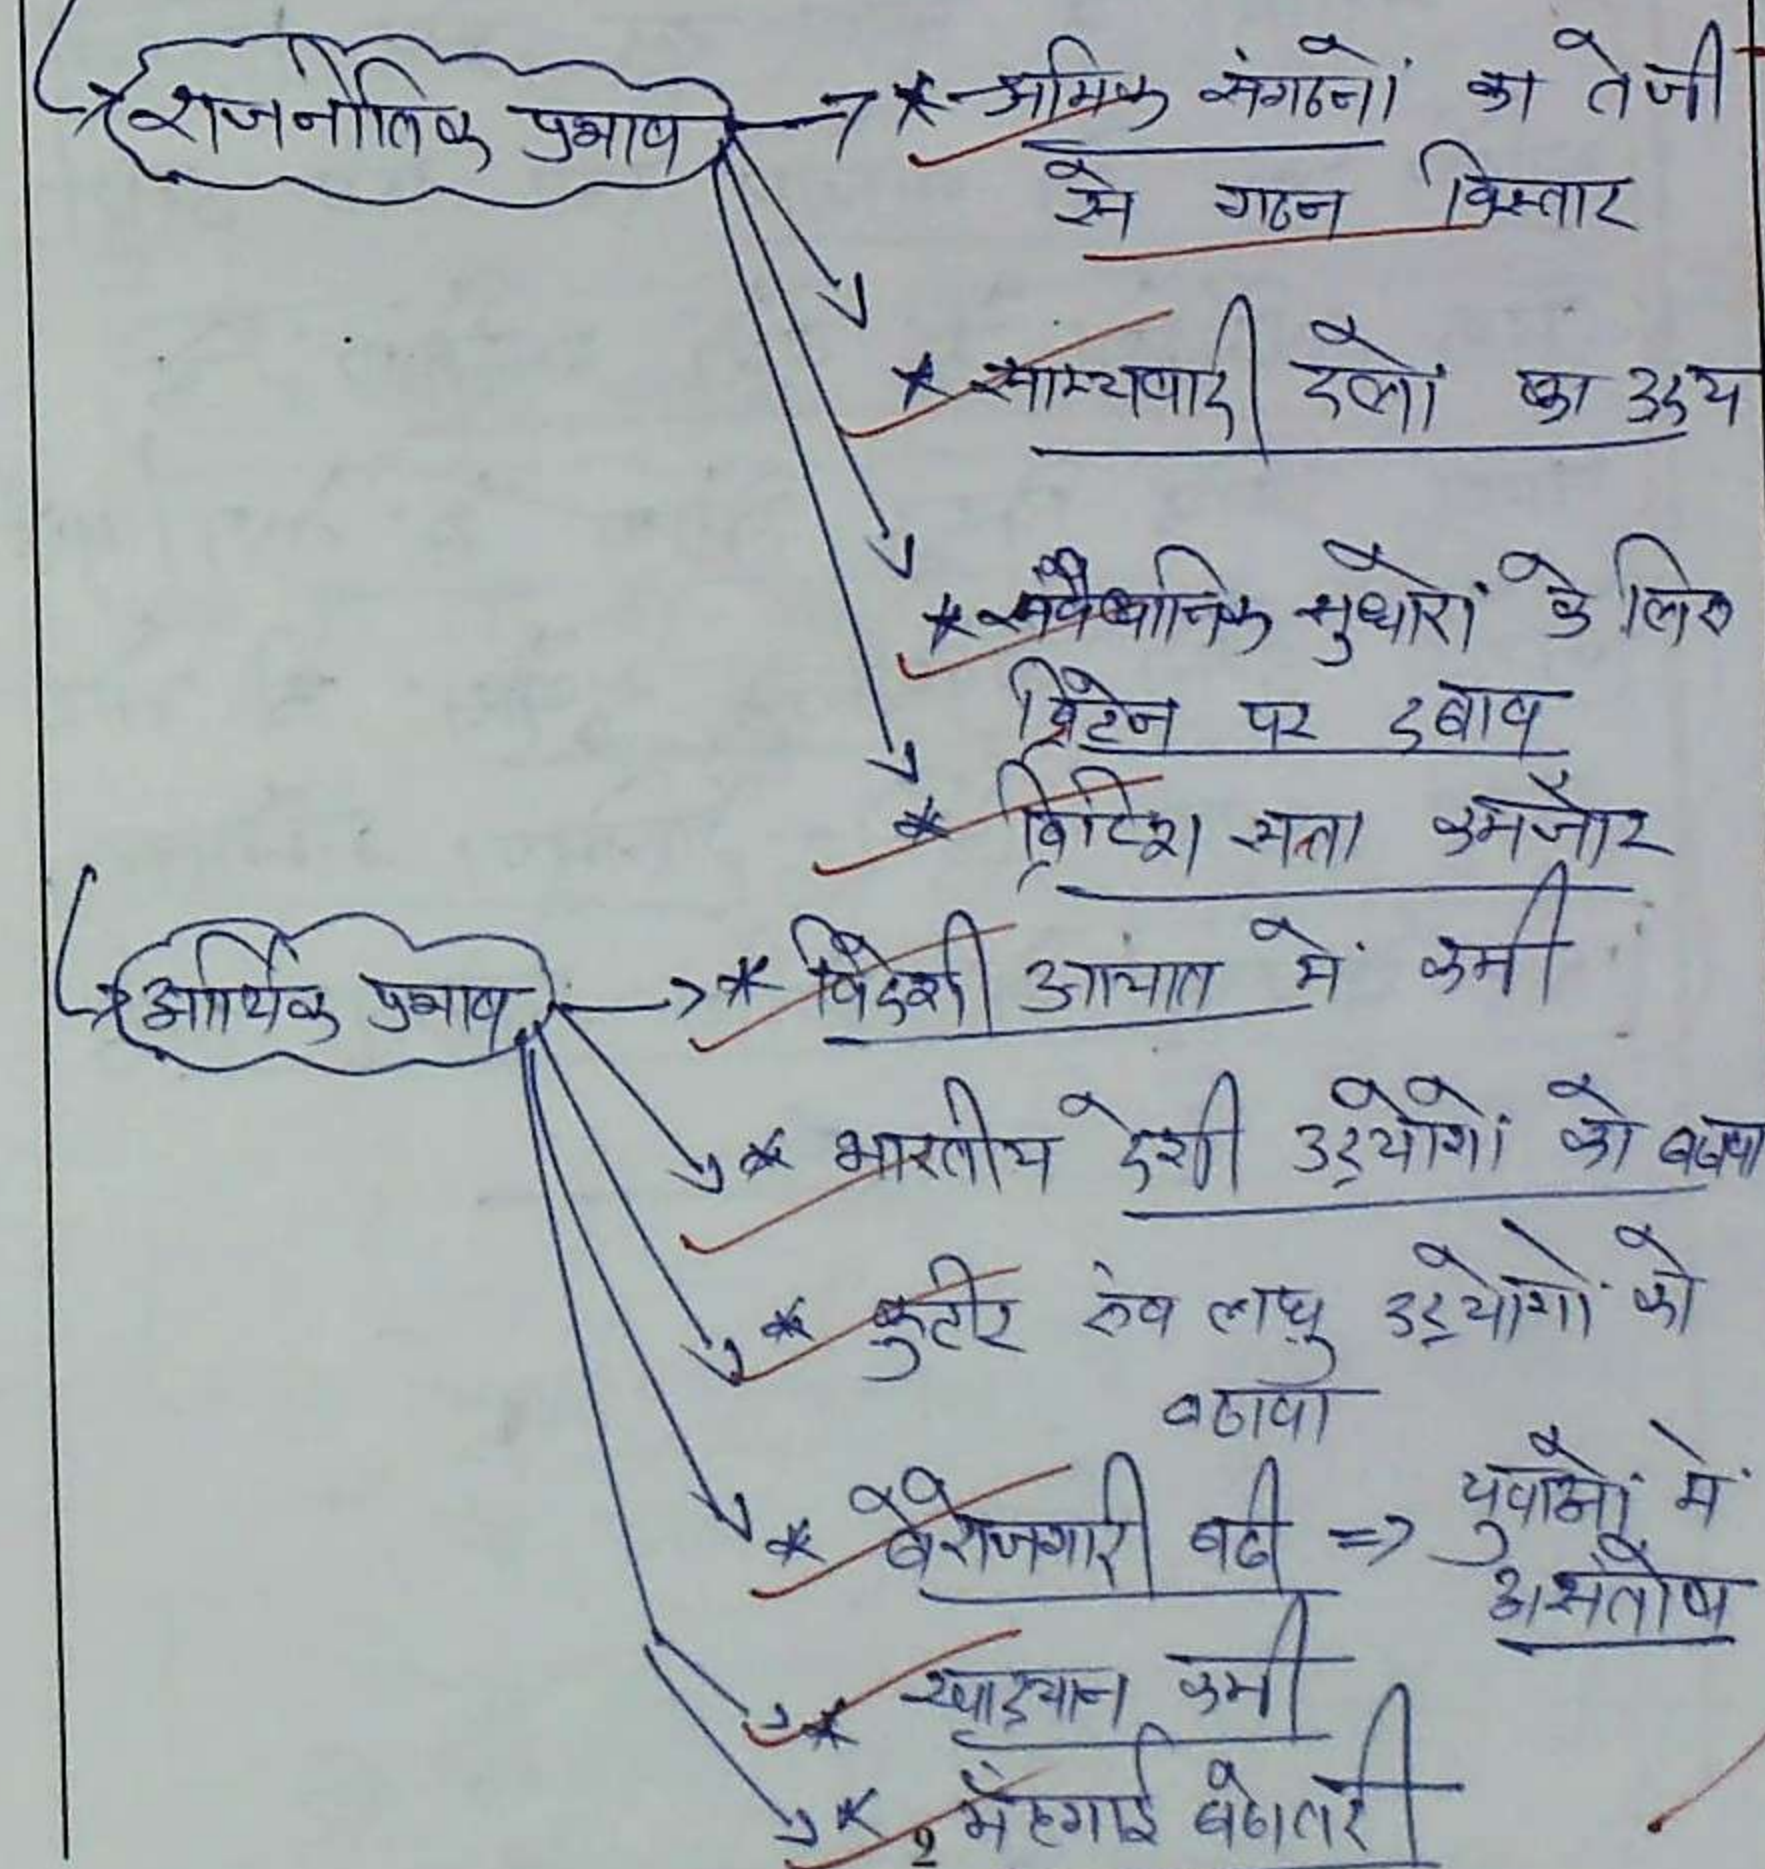 राजनीतिक प्रभाव → * श्रमिक संगठनों का तेजी
से गठन विस्तार
* साम्यवादी दलों का उदय
* संवैधानिक सुधारों के लिए
ब्रिटेन पर दबाव
* ब्रिटिश सत्ता कमजोर
आर्थिक प्रभाव → * विदेशी आयात में कमी
* भारतीय देशी उद्योगों को बढावा
* कुटीर एंव लघु उद्योगों को
बढावा
* बेरोजगारी बढी => युवाओं में
असंतोष
* खाद्यान कमी
* मँहगाई बढोतरी
2